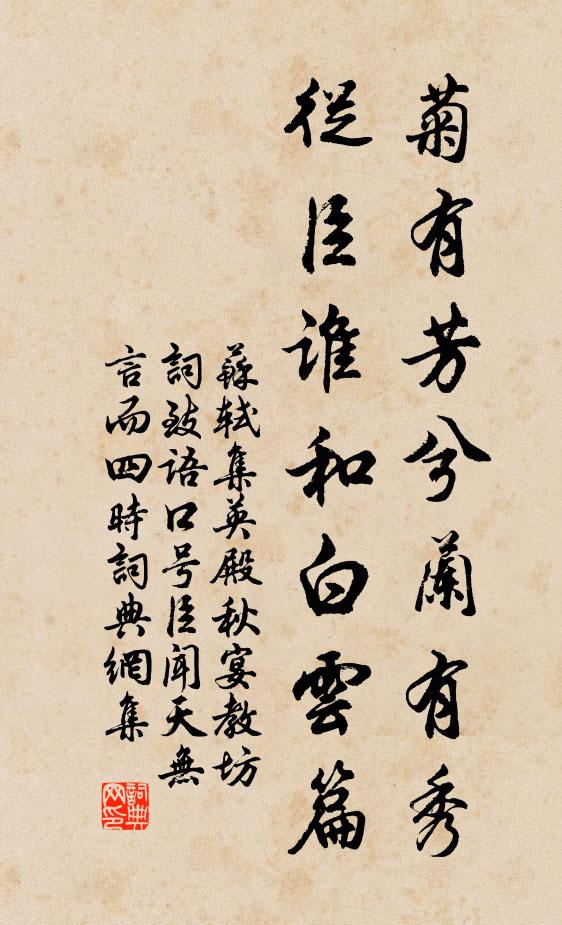 菊有芳兮蘭有秀
從臣誰和白雲篇
蘇軾集英殿秋宴教坊
詞致語口号臣聞天無
言而四時詞典網集
詞典网印